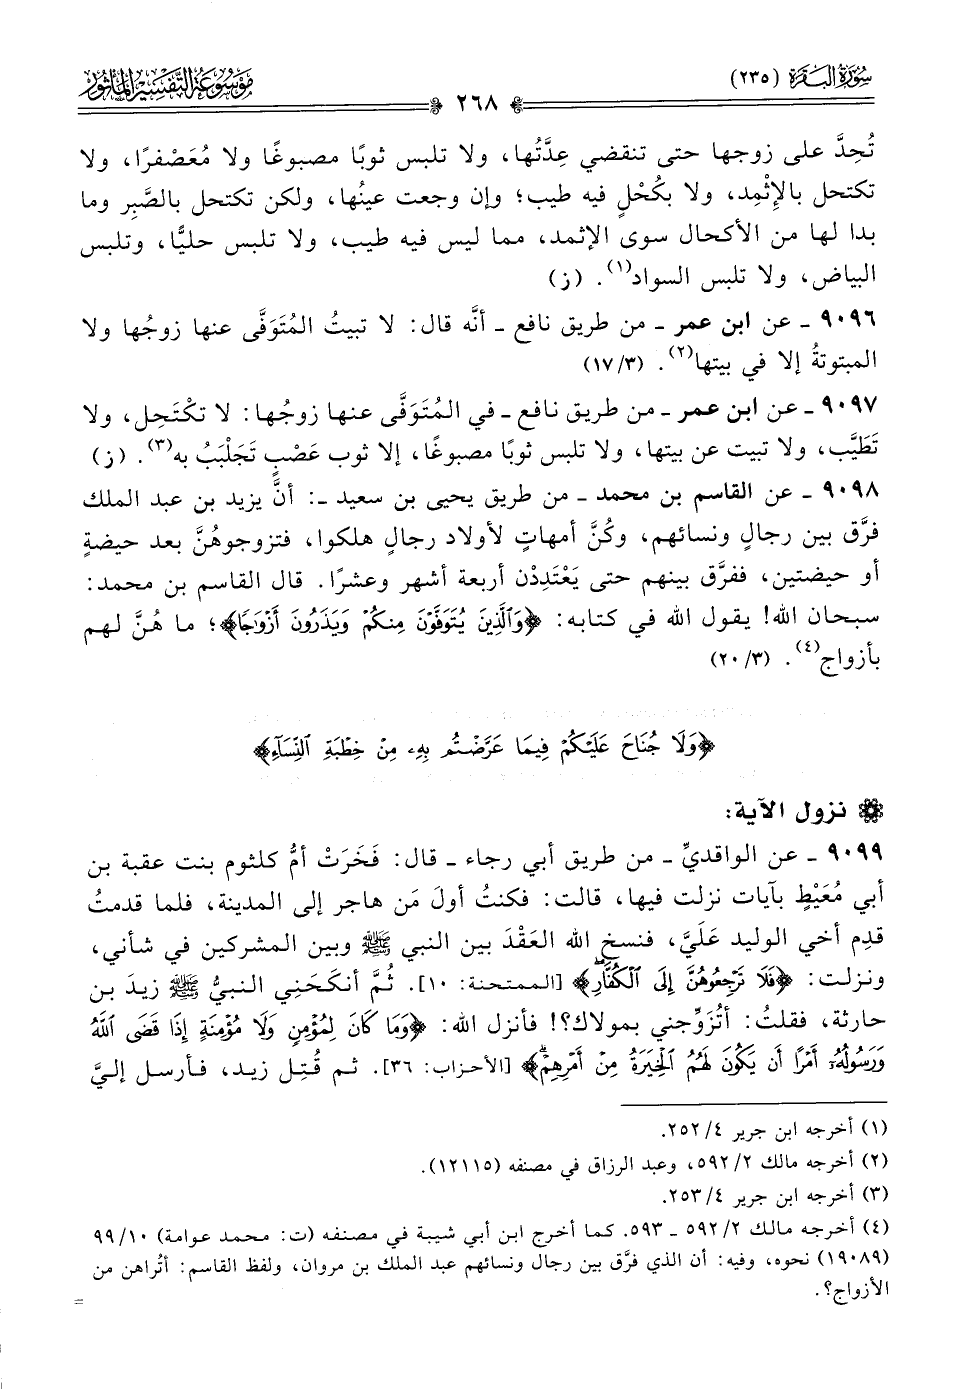 سُورَةُ البَقَرَةِ (٢٣٥)
٢٦٨
مَوْسُوعَةُ التَّفْسِيرِ المَأْثُورِ
تُحِدَّ على زوجها حتى تنقضي عِدَّتُها، ولا تلبس ثوبًا مصبوغًا ولا مُعَصْفرًا، ولا
تكتحل بالإِثْمِد، ولا بكُحْلٍ فيه طيب؛ وإن وجعت عينُها، ولكن تكتحل بالصَّبِر وما
بدا لها من الأكحال سوى الإثمد، مما ليس فيه طيب، ولا تلبس حليًّا، وتلبس
البياض، ولا تلبس السواد(١). (ز)
٩٠٩٦ ـ عن ابن عمر ـ من طريق نافع ـ أنَّه قال: لا تبيتُ المُتَوَفَّى عنها زوجُها ولا
المبتوتةُ إلا في بيتها(٢). (١٧/٣)
٩٠٩٧ ـ عن ابن عمر ـ من طريق نافع ـ في المُتَوَفَّى عنها زوجُها: لا تكْتَحِل، ولا
تَطَيَّب، ولا تبيت عن بيتها، ولا تلبس ثوبًا مصبوغًا، إلا ثوب عَصْبٍ تَجَلْبَبُ به(٣). (ز)
٩٠٩٨ ـ عن القاسم بن محمد ـ من طريق يحيى بن سعيد ـ: أنَّ يزيد بن عبد الملك
فرَّق بين رجالٍ ونسائهم، وكُنَّ أمهاتٍ لأولاد رجالٍ هلكوا، فتزوجوهُنَّ بعد حيضةٍ
أو حيضتين، ففرَّق بينهم حتى يَعْتَدِدْن أربعة أشهر وعشرًا. قال القاسم بن محمد:
سبحان الله! يقول الله في كتابه: ﴿وَٱلَّذِينَ يُتَوَفَّوْنَ مِنكُمْ وَيَذَرُونَ أَزْوَٰجًا﴾؛ ما هُنَّ لهم
بأزواج(٤). (٢٠/٣)
﴿وَلَا جُنَاحَ عَلَيْكُمْ فِيمَا عَرَّضْتُم بِهِۦ مِنْ خِطْبَةِ ٱلنِّسَآءِ﴾
نزول الآية:
٩٠٩٩ ـ عن الواقديِّ ـ من طريق أبي رجاء ـ قال: فَخَرَتْ أمُّ كلثوم بنت عقبة بن
أبي مُعَيْطٍ بآيات نزلت فيها، قالت: فكنتُ أولَ مَن هاجر إلى المدينة، فلما قدمتُ
قدِم أخي الوليد عَلَيَّ، فنسخ الله العَقْدَ بين النبي ﷺ وبين المشركين في شأني،
ونزلت: ﴿فَلَا تَرْجِعُوهُنَّ إِلَى ٱلْكُفَّارِ﴾ [الممتحنة: ١٠]. ثُمَّ أنكَحَني النبيُّ ﷺ زيدَ بن
حارثة، فقلتُ: أتُزوِّجني بمولاك؟! فأنزل الله: ﴿وَمَا كَانَ لِمُؤْمِنٍ وَلَا مُؤْمِنَةٍ إِذَا قَضَى ٱللَّهُ
وَرَسُولُهُۥٓ أَمْرًا أَن يَكُونَ لَهُمُ ٱلْخِيَرَةُ مِنْ أَمْرِهِمْ﴾ [الأحزاب: ٣٦]. ثم قُتِل زيد، فأرسل إليَّ
(١) أخرجه ابن جرير ٢٥٢/٤.
(٢) أخرجه مالك ٥٩٢/٢، وعبد الرزاق في مصنفه (١٢١١٥).
(٣) أخرجه ابن جرير ٢٥٣/٤.
(٤) أخرجه مالك ٥٩٢/٢ ـ ٥٩٣. كما أخرج ابن أبي شيبة في مصنفه (ت: محمد عوامة) ٩٩/١٠
(١٩٠٨٩) نحوه، وفيه: أن الذي فرَّق بين رجال ونسائهم عبد الملك بن مروان، ولفظ القاسم: أتُراهن من
الأزواج؟.
=